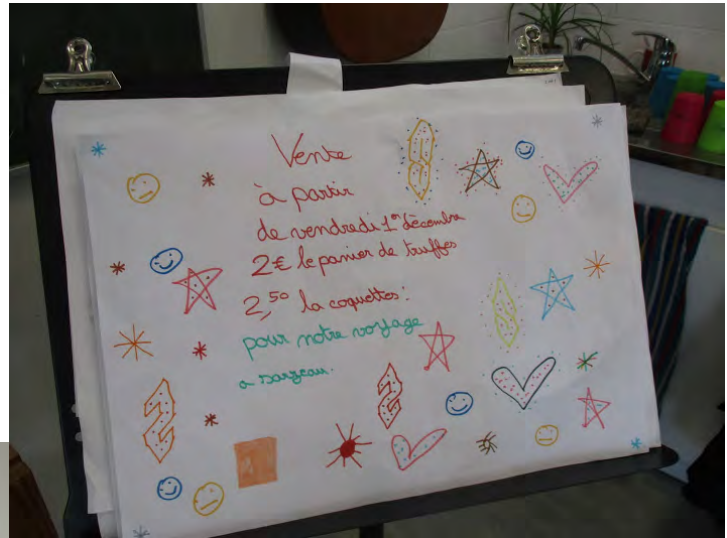 Vente
à partir
de vendredi 1er décembre
2€ le panier de truffes
2,50 la coquettes :
pour notre voyage
a sarzeau.